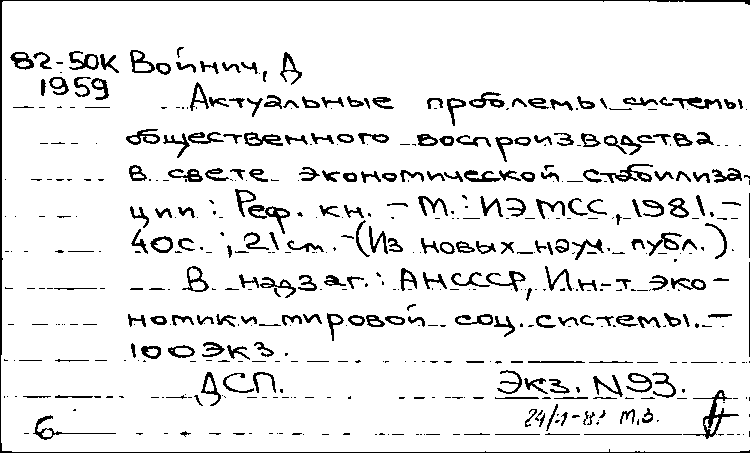 82-50К Войнич, Д
1959
Актуальные проблемы системы
общественного воспроизводства
в свете экономической стабилиза-
ции: Реф. кн. - М.: ИЭМСС, 1981. -
40с.; 21см. - (Из новых науч. публ.)
В надзаг.: АНСССР, Ин-т эко-
номики мировой соц. системы. -
100экз.
ДСП. Экз. N93.
6 М.З.